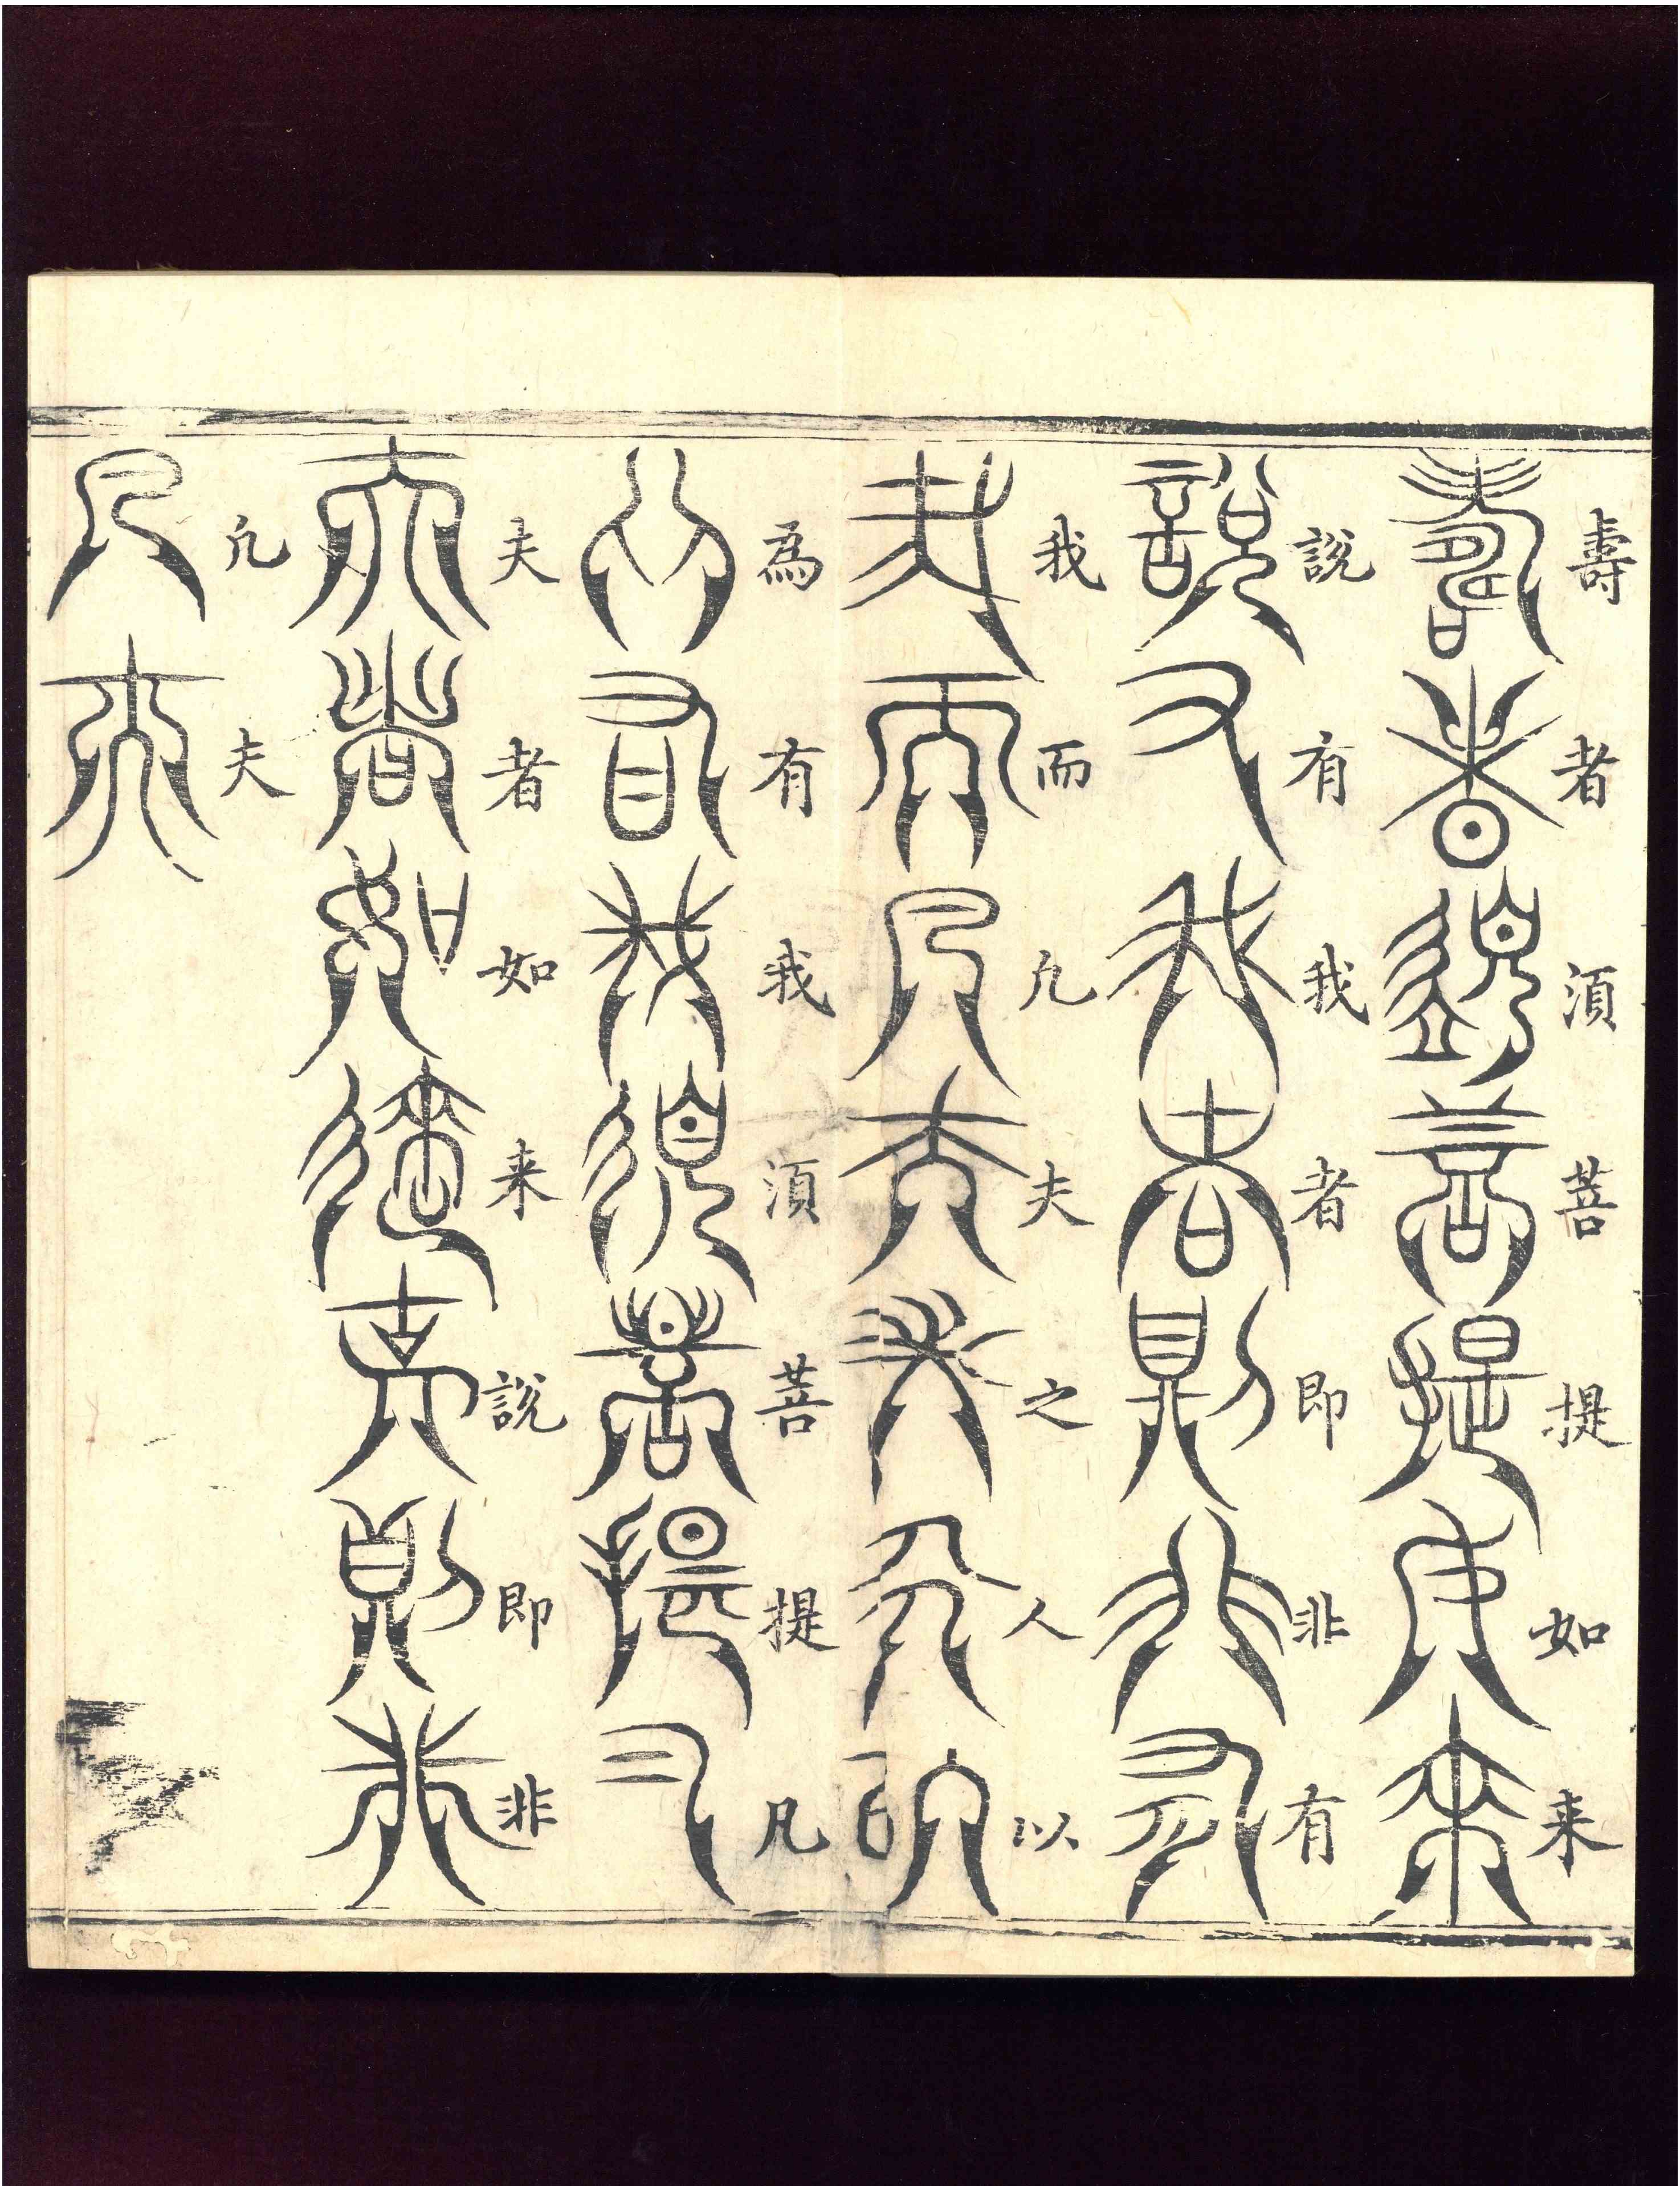 壽者湏菩提如来
說有我者即非有
我而凢夫之人以
為有我湏菩提凡
夫者如来說即非
凢夫